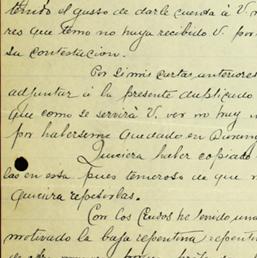 tenido el gusto de darle cuenta à V.
res que temo no haya recibido V. por
su contestacion.
Por si mis cartas anteriores
adjuntar à la presente duplicado
que como se servirá V. ver no muy
por haberseme quedado en
Quisiera haber copiado
las en esta pues temeroso de que
quisiera repetirlas.
Con los he tenido una
motivado la baja repentina